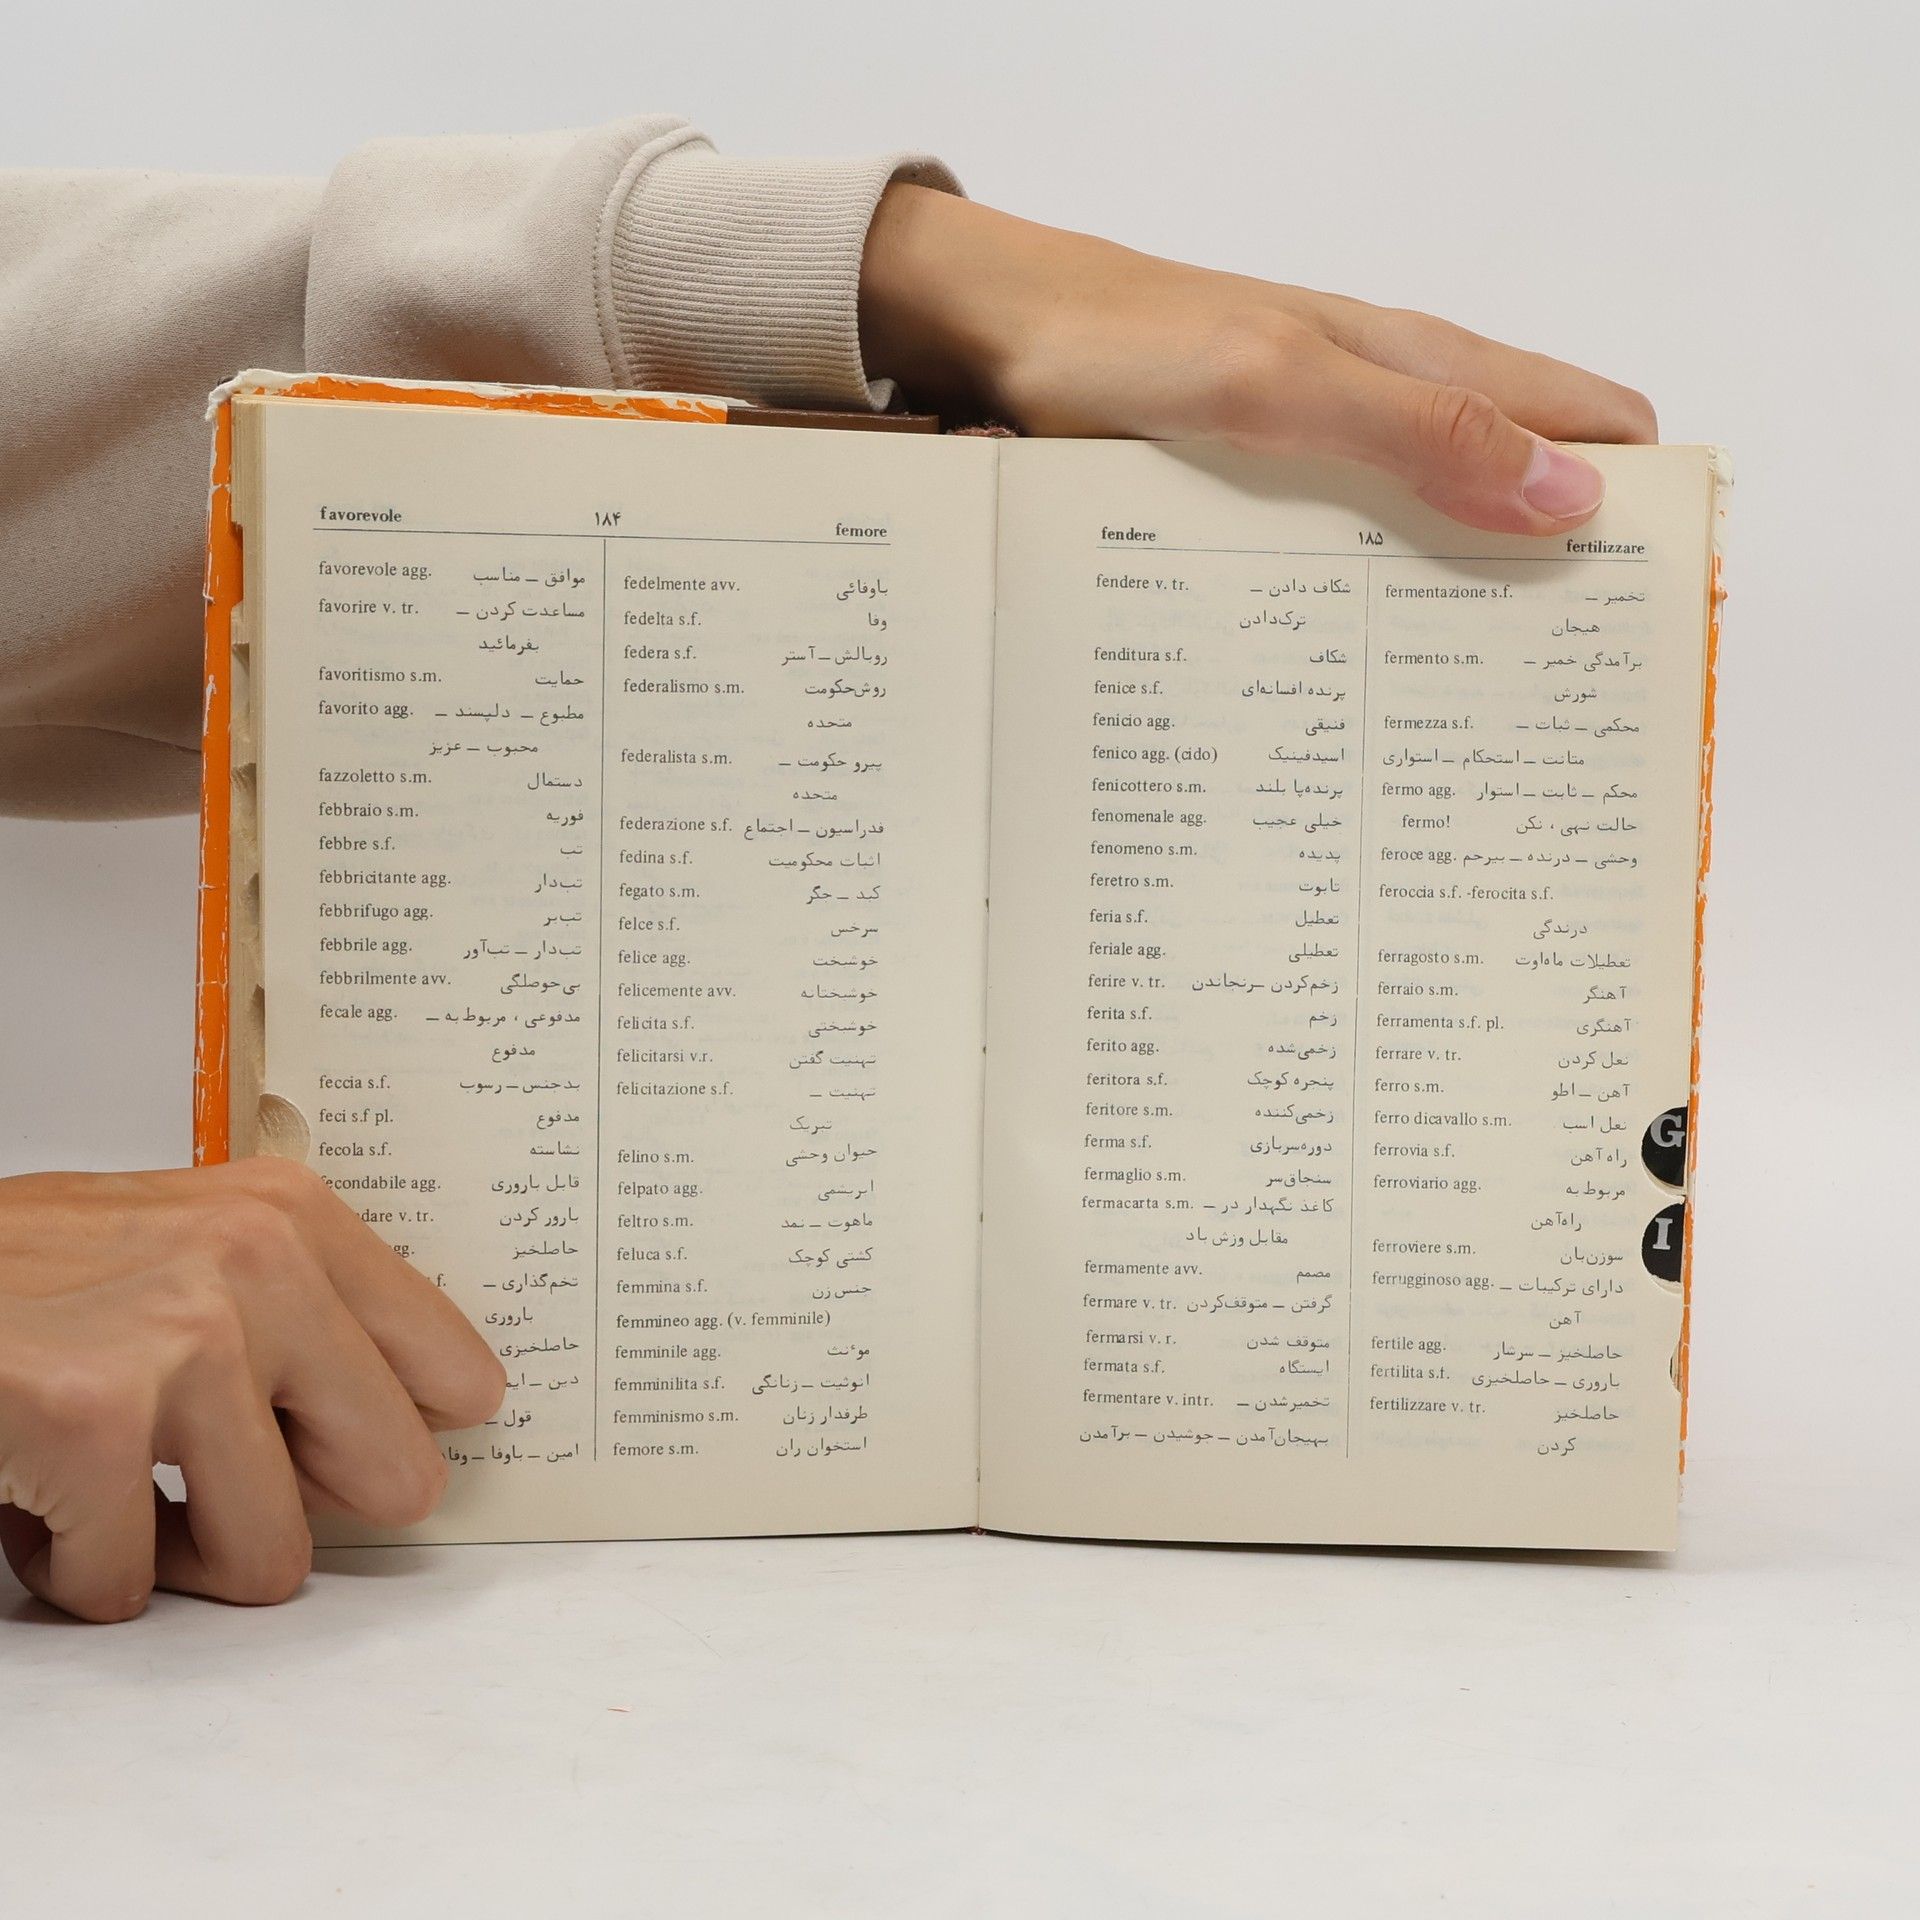 favorevole ۱۸۴ femore
favorevole agg. موافق ــ مناسب
favorire v. tr. مساعدت کردن ــ
بفرمائید
favoritismo s.m. حمایت
favorito agg. مطبوع ــ دلپسند ــ
محبوب ــ عزیز
fazzoletto s.m. دستمال
febbraio s.m. فوریه
febbre s.f. تب
febbricitante agg. تب‌دار
febbrifugo agg. تب‌بر
febbrile agg. تب‌دار ــ تب‌آور
febbrilmente avv. بی‌حوصلگی
fecale agg. مدفوعی ، مربوط به ــ
مدفوع
feccia s.f. بدجنس ــ رسوب
feci s.f pl. مدفوع
fecola s.f. نشاسته
fecondabile agg. قابل باروری
dare v. tr. بارور کردن
gg. حاصلخیز
f. تخم‌گذاری ــ
باروری
حاصلخیزی
دین ــ
قول ــ
امین ــ باوفا ــ
fedelmente avv. باوفائی
fedelta s.f. وفا
federa s.f. روبالش ــ آستر
federalismo s.m. روش‌حکومت
متحده
federalista s.m. پیرو حکومت ــ
متحده
federazione s.f. فدراسیون ــ اجتماع
fedina s.f. اثبات محکومیت
fegato s.m. کبد ــ جگر
felce s.f. سرخس
felice agg. خوشبخت
felicemente avv. خوشبختانه
felicita s.f. خوشبختی
felicitarsi v.r. تهنیت گفتن
felicitazione s.f. تهنیت ــ
تبریک
felino s.m. حیوان وحشی
felpato agg. ابریشمی
feltro s.m. ماهوت ــ نمد
feluca s.f. کشتی کوچک
femmina s.f. جنس زن
femmineo agg. (v. femminile)
femminile agg. موٴنث
femminilita s.f. انوثیت ــ زنانگی
femminismo s.m. طرفدار زنان
femore s.m. استخوان ران
fendere ۱۸۵ fertilizzare
fendere v. tr. شکاف دادن ــ
ترک‌دادن
fenditura s.f. شکاف
fenice s.f. پرنده افسانه‌ای
fenicio agg. فنیقی
fenico agg. (cido) اسیدفینیک
fenicottero s.m. پرنده‌پا بلند
fenomenale agg. خیلی عجیب
fenomeno s.m. پدیده
feretro s.m. تابوت
feria s.f. تعطیل
feriale agg. تعطیلی
ferire v. tr. زخم‌کردن ــ رنجاندن
ferita s.f. زخم
ferito agg. زخمی‌شده
feritora s.f. پنجره کوچک
feritore s.m. زخمی‌کننده
ferma s.f. دوره‌سربازی
fermaglio s.m. سنجاق‌سر
fermacarta s.m. کاغذ نگهدار در ــ
مقابل وزش باد
fermamente avv. مصمم
fermare v. tr. گرفتن ــ متوقف‌کردن
fermarsi v. r. متوقف شدن
fermata s.f. ایستگاه
fermentare v. intr. تخمیرشدن ــ
بهیجان‌آمدن ــ جوشیدن ــ برآمدن
fermentazione s.f. تخمیر ــ
هیجان
fermento s.m. برآمدگی خمیر ــ
شورش
fermezza s.f. محکمی ــ ثبات ــ
متانت ــ استحکام ــ استواری
fermo agg. محکم ــ ثابت ــ استوار
fermo! حالت نهی ، نکن
feroce agg. وحشی ــ درنده ــ بیرحم
feroccia s.f. -ferocita s.f.
درندگی
ferragosto s.m. تعطیلات ماه‌اوت
ferraio s.m. آهنگر
ferramenta s.f. pl. آهنگری
ferrare v. tr. نعل کردن
ferro s.m. آهن ــ اطو
ferro dicavallo s.m. نعل اسب
ferrovia s.f. راه آهن
ferroviario agg. مربوط به
راه‌آهن
ferroviere s.m. سوزن‌بان
ferrugginoso agg. دارای ترکیبات ــ
آهن
fertile agg. حاصلخیز ــ سرشار
fertilita s.f. باروری ــ حاصلخیزی
fertilizzare v. tr. حاصلخیز
کردن
G
I